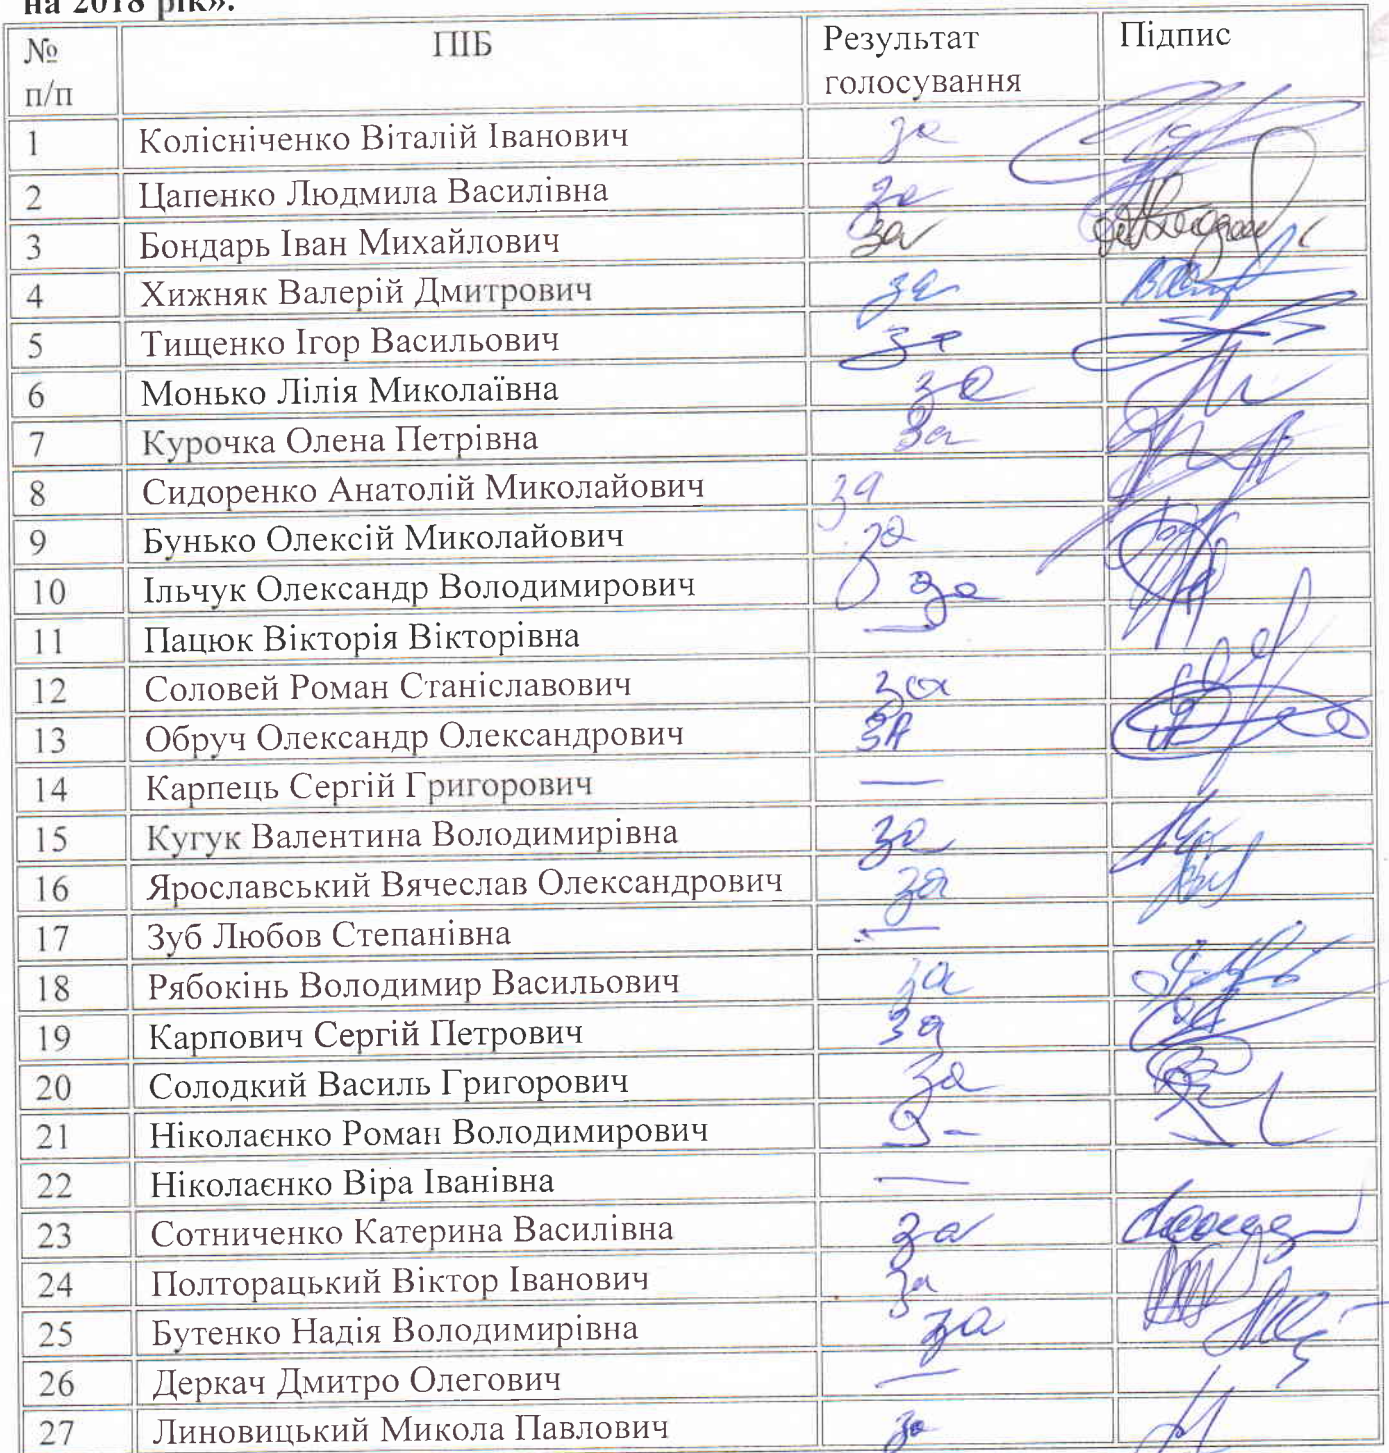 на 2018 рік».
№ ПІБ Результат Підпис
п/п голосування
1 Колісніченко Віталій Іванович за
2 Цапенко Людмила Василівна за
3 Бондарь Іван Михайлович за
4 Хижняк Валерій Дмитрович за
5 Тищенко Ігор Васильович за
6 Монько Лілія Миколаївна за
7 Курочка Олена Петрівна За
8 Сидоренко Анатолій Миколайович за
9 Бунько Олексій Миколайович за
10 Ільчук Олександр Володимирович за
11 Пацюк Вікторія Вікторівна —
12 Соловей Роман Станіславович за
13 Обруч Олександр Олександрович ЗА
14 Карпець Сергій Григорович —
15 Кугук Валентина Володимирівна за
16 Ярославський Вячеслав Олександрович за
17 Зуб Любов Степанівна —
18 Рябокінь Володимир Васильович за
19 Карпович Сергій Петрович за
20 Солодкий Василь Григорович за
21 Ніколаєнко Роман Володимирович
22 Ніколаєнко Віра Іванівна —
23 Сотниченко Катерина Василівна за
24 Полторацький Віктор Іванович за
25 Бутенко Надія Володимирівна за
26 Деркач Дмитро Олегович —
27 Линовицький Микола Павлович за